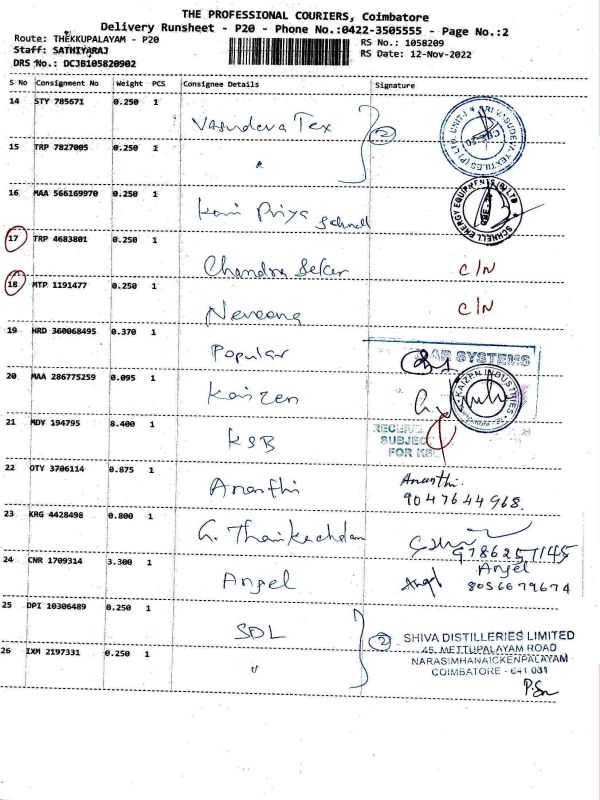 THE PROFESSIONAL COURIERS, Coimbatore
Delivery Runsheet - P20 - Phone No.:0422-3505555 - Page No.:2
Route: THEKKUPALAYAM - P20
RS No.: 1058209
Staff: SATHIYARAJ
RS Date: 12-Nov-2022
DRS No.: DCJB105820902
S No Consignment No Weight PCS Consignee Details Signature
14 STY 785671 0.250 1
Vasudeva Tex 2
15 TRP 7827005 0.250 1
"
16 MAA 566169970 0.250 1
Priya Schnell
SCHNELL ENERGY EQUIPMENTS (P) LTD
17 TRP 4683801 0.250 1
Chandra Seker C/N
18 MTP 1191477 0.250 1
C/N
19 HRD 360068495 0.370 1
Popular
SYSTEMS
20 MAA 286775259 0.095 1
Kaizen
KAIZEN INDUSTRIES
21 MDY 194795 8.400 1
KSB
SUBJECT
FOR
22 OTY 3706114 0.875 1
Ananthi
Ananthi.
9047644968.
23 KRG 4428498 0.800 1
9786257145
24 CNR 1709314 3.300 1
Angel
Angel Angel
8056679674
25 DPI 10306489 0.250 1
SDL 2
SHIVA DISTILLERIES LIMITED
45, METTUPALAYAM ROAD
NARASIMHANAICKENPALAYAM
COIMBATORE - 641 031
26 IXM 2197331 0.250 1
"